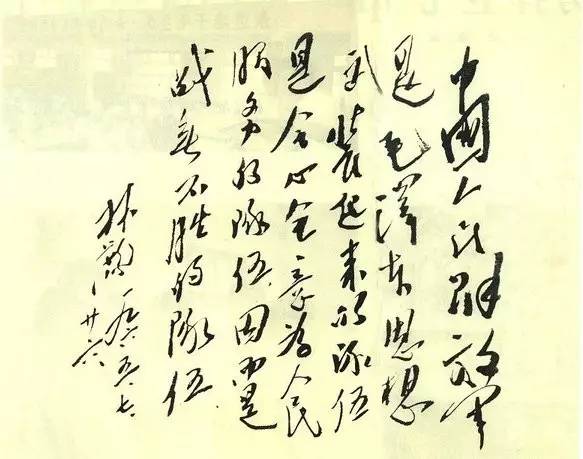 中國人民解放军
是毛澤东思想
武装起来的隊伍
是全心全意为人民
服务的隊伍因而是
战无不胜的隊伍
林彪 一九六五、七、
廿六